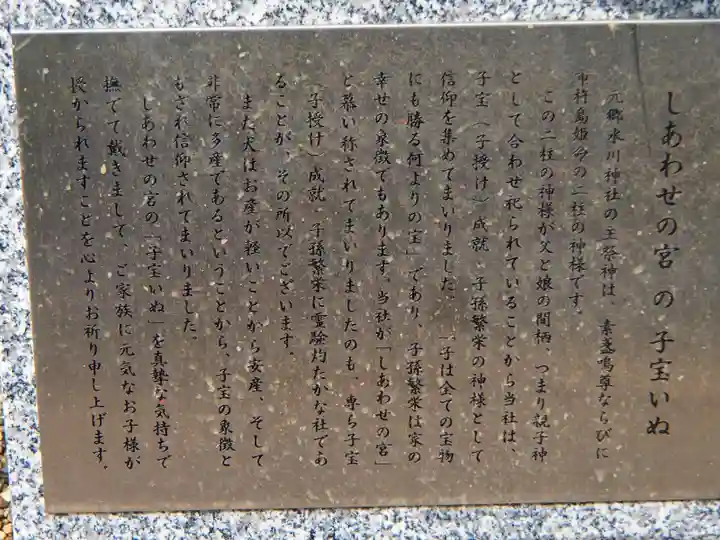 しあわせの宮の子宝いぬ
元郷氷川神社の主祭神は、素盞鳴尊ならびに
市杵島姫命の二柱の神様です。
この二柱の神様が父と娘の間柄、つまり親子神
として合わせ祀られていることから当社は、
子宝（子授け）成就　子孫繁栄の神様として
信仰を集めてまいりました。「子は全ての宝物
にも勝る何よりの宝」であり、子孫繁栄は家の
幸せの象徴でもあります。当社が「しあわせの宮」
と慕い称されてまいりましたのも、専ら子宝
（子授け）成就　子孫繁栄に霊験灼たかな社であ
ることが、その所以でございます。
また犬はお産が軽いことから安産、そして
非常に多産であるということから、子宝の象徴と
もされ信仰されてまいりました。
しあわせの宮の「子宝いぬ」を真摯な気持ちで
撫でて戴きまして、ご家族に元気なお子様が
授かられますことを心よりお祈り申し上げます。